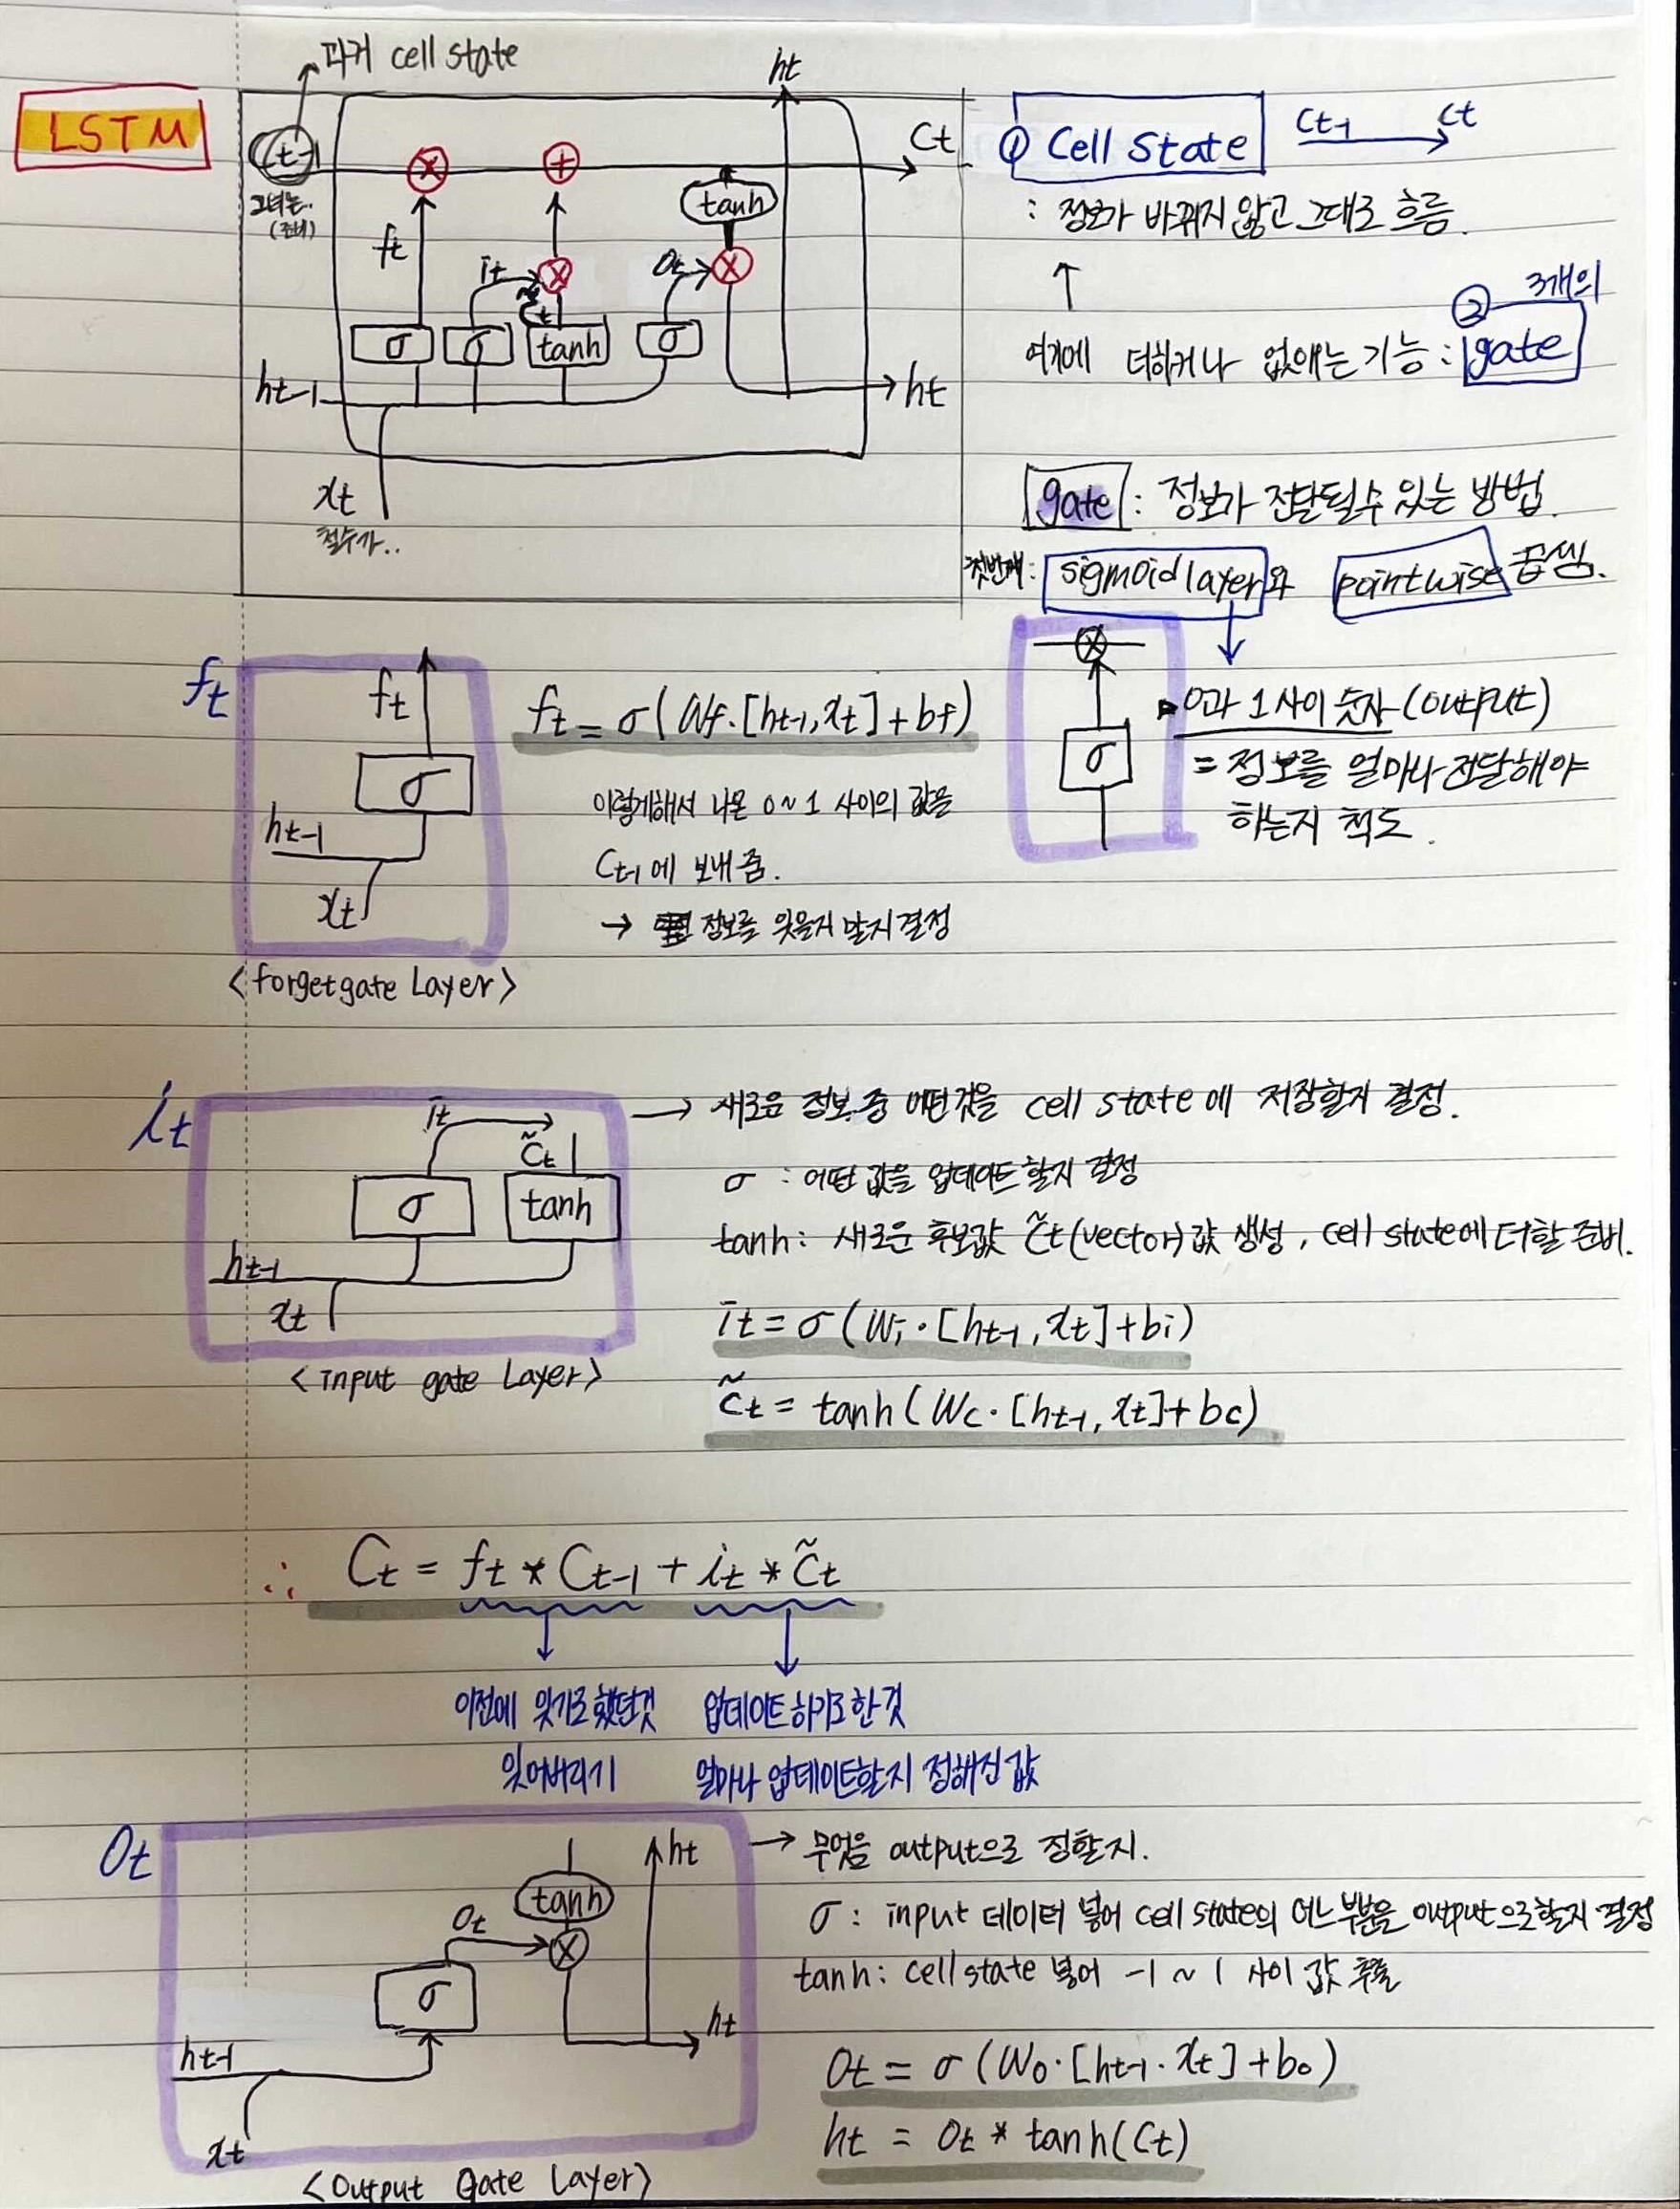 LSTM
과거 cell state
Ct-1
그녀는..
(존비)
ht
Ct
ft
it
C̃t
Ot
tanh
σ
σ
tanh
σ
ht-1
ht
xt
철수가..
① Cell State
Ct-1 Ct
: 정보가 바뀌지 않고 그대로 흐름.
↑
여기에 더하거나 없애는 기능 : ② 3개의 gate
gate : 정보가 전달될 수 있는 방법.
첫번째 : sigmoid layer와 pointwise 곱셈.
σ
0과 1 사이 숫자 (output)
= 정보를 얼마나 전달해야
하는지 척도.
ft
ft
σ
ht-1
xt
<forget gate Layer>
ft = σ(Wf·[ht-1, xt] + bf)
이렇게해서 나온 0~1 사이의 값을
Ct-1에 보내줌.
→ 정보를 잊을지 말지 결정
it
it
C̃t
σ
tanh
ht-1
xt
<input gate Layer>
→ 새로운 정보 중 어떤것을 cell state에 저장할지 결정.
σ : 어떤 값을 업데이트 할지 결정
tanh : 새로운 후보값 C̃t(vector)값 생성, cell state에 더할 준비.
it = σ(Wi·[ht-1, xt] + bi)
C̃t = tanh(Wc·[ht-1, xt] + bc)
∴ Ct = ft * Ct-1 + it * C̃t
이전에 잊기로 했던것
잊어버리기
업데이트하기로 한 것
얼마나 업데이트할지 정해진 값
Ot
ht
tanh
Ot
σ
ht
ht-1
xt
<Output Gate Layer>
→ 무엇을 output으로 정할지.
σ : input 데이터 넣어 cell state의 어느 부분을 output으로 할지 결정
tanh : cell state 넣어 -1 ~ 1 사이 값 추출
Ot = σ(Wo·[ht-1·xt] + bo)
ht = Ot * tanh(Ct)